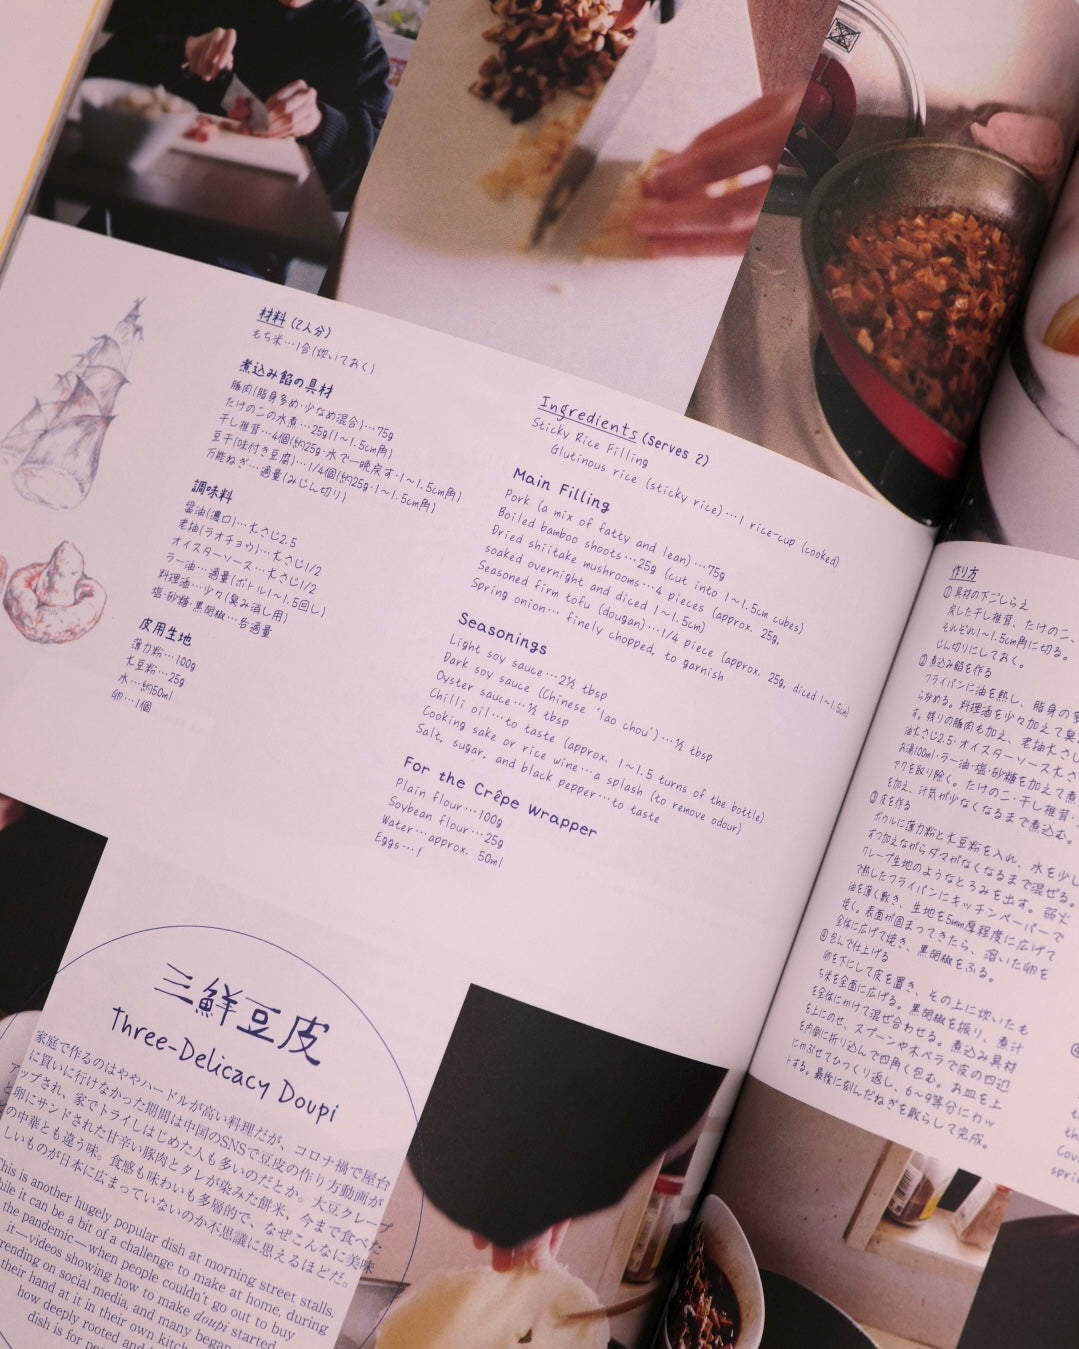 材料(2人分)
もち米…1合(炊いておく)
煮込み餡の具材
豚肉(脂身多め・少なめ混合)…75g
たけのこの水煮…25g(1〜1.5cm角)
干し椎茸…4個(約25g・水で一晩戻す・1〜1.5cm角)
豆干(味付き豆腐)…1/4個(約25g・1〜1.5cm角)
万能ねぎ…適量(みじん切り)
調味料
醤油(濃口)…大さじ2.5
老抽(ラオチョウ)…大さじ1/2
オイスターソース…大さじ1/2
ラー油…適量(ボトル1〜1.5回し)
料理酒…少々(臭み消し用)
塩・砂糖・黒胡椒…各適量
皮用生地
薄力粉…100g
大豆粉…25g
水…約50ml
卵…1個
Ingredients (Serves 2)
Sticky Rice Filling
Glutinous rice (sticky rice)…1 rice-cup (cooked)
Main Filling
Pork (a mix of fatty and lean)…75g
Boiled bamboo shoots…25g (cut into 1〜1.5cm cubes)
Dried shiitake mushrooms…4 pieces (approx. 25g,
soaked overnight and diced 1〜1.5cm)
Seasoned firm tofu (dougan)…1/4 piece (approx. 25g, diced 1〜1.5cm)
Spring onion… finely chopped, to garnish
Seasonings
Light soy sauce…2½ tbsp
Dark soy sauce (Chinese 'lao chou')…½ tbsp
Oyster sauce…½ tbsp
Chilli oil…to taste (approx. 1〜1.5 turns of the bottle)
Cooking sake or rice wine…a splash (to remove odour)
Salt, sugar, and black pepper…to taste
For the Crêpe Wrapper
Plain flour…100g
Soybean flour…25g
Water…approx. 50ml
Eggs…1
三鮮豆皮
Three-Delicacy Doupi
家庭で作るのはややハードルが高い料理だが、コロナ禍で屋台
に買いに行けなかった期間は中国のSNSで豆皮の作り方動画が
アップされ、家でトライしはじめた人も多いのだとか。大豆クレープ
と卵にサンドされた甘辛い豚肉とタレが染みた餅米、今まで食べた
の中華とも違う味。食感も味わいも多層的で、なぜこんなに美味
しいものが日本に広まっていないのか不思議に思えるほどだ。
This is another hugely popular dish at morning street stalls.
while it can be a bit of a challenge to make at home, during
the pandemic—when people couldn't go out to buy
it—videos showing how to make doupi started
trending on social media, and many began
their hand at it in their own kitch
how deeply rooted and
dish is for pe
作り方
①具材の下ごしらえ
戻した干し椎茸、たけのこ、
それぞれ1〜1.5cm角に切る。
じん切りにしておく。
②煮込み餡を作る
フライパンに油を熱し、脂身の多
ら炒める。料理酒を少々加えて臭
す。残りの豚肉も加え、老抽大さじ
油大さじ2.5・オイスターソース大さ
お湯100ml・ラー油・塩・砂糖を加えて煮
アクを取り除く。たけのこ・干し椎茸・
を加え、汁気が少なくなるまで煮込む。
③皮を作る
ボウルに薄力粉と大豆粉を入れ、水を少し
ずつ加えながらダマがなくなるまで混ぜる。
クレープ生地のようなとろみを出す。弱火
で熱したフライパンにキッチンペーパーで
油を薄く敷き、生地を5mm厚程度に広げて
焼く。表面が固まってきたら、溶いた卵を
全体に広げて焼き、黒胡椒をふる。
④包んで仕上げる
卵を下にして皮を置き、その上に炊いたも
ち米を全面に広げる。黒胡椒を振り、煮汁
を全体にかけて混ぜ合わせる。煮込み具材
を上にのせ、スプーンや木ベラで皮の四辺
を内側に折り込んで四角く包む。お皿を上
にかぶせてひっくり返し、6〜9等分にカッ
トする。最後に刻んだねぎを散らして完成。
④
th
Cov
sprin